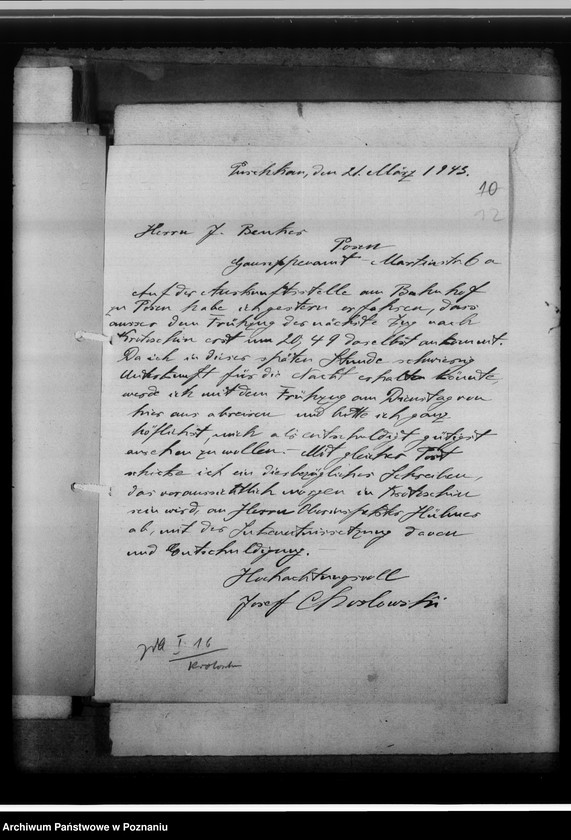 Puschkau, den 21. März 1943.
10
12
Herrn J. Benkes
Posen
Gausippenamt Martinstr. 6 a
Auf der Auskunftsstelle am Bahnhof
zu Posen habe ich gestern erfahren, dass
ausser dem Frühzug der nächste Zug nach
Krotoschin erst um 20,49 daselbst ankommt.
Da ich in dieser späten Stunde schwierig
Unterkunft für die Nacht erhalten könnte,
werde ich mit dem Frühzug am Dienstag von
hier aus abreisen und bitte ich ganz
höflichst, mich als entschuldigt gütigst
ansehen zu wollen. – Mit gleicher Post
schicke ich ein diesbezügliches Schreiben,
das voraussichtlich morgen in Krotoschin
sein wird, an Herrn Oberinspektor Hübner
ab, mit der Inkenntnissetzung davon
und Entschuldigung.
Hochachtungsvoll
Josef Choslowski
I. 16
Archiwum Państwowe w Poznaniu